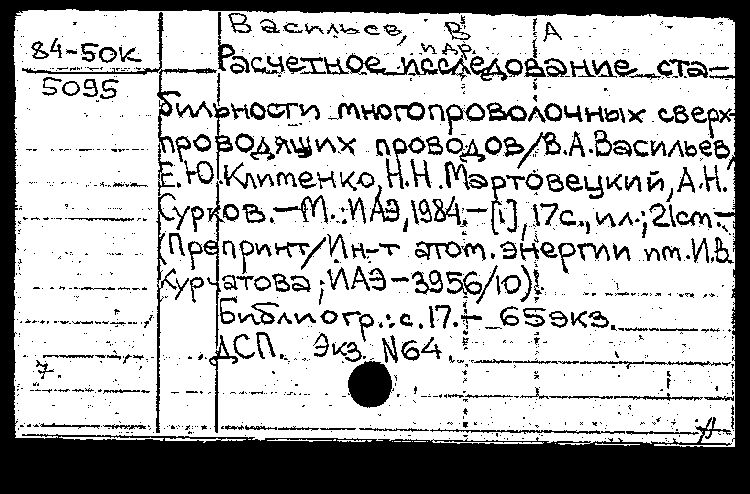 Васильев, В А
и др.
84-50к
Расчетное исследование ста-
5095
бильности многопроволочных сверх-
проводящих проводов/В.А.Васильев,
Е.Ю.Клименко, Н.Н.Мартовецкий, А.Н.
Сурков.—М.:ИАЭ,1984.—[1],17с.,ил.;21см.—
(Препринт/Ин-т атом.энергии им.И.В.
Курчатова; ИАЭ-3956/10).
Библиогр.:с.17.— 65экз.
ДСП. Экз. N64.
7.